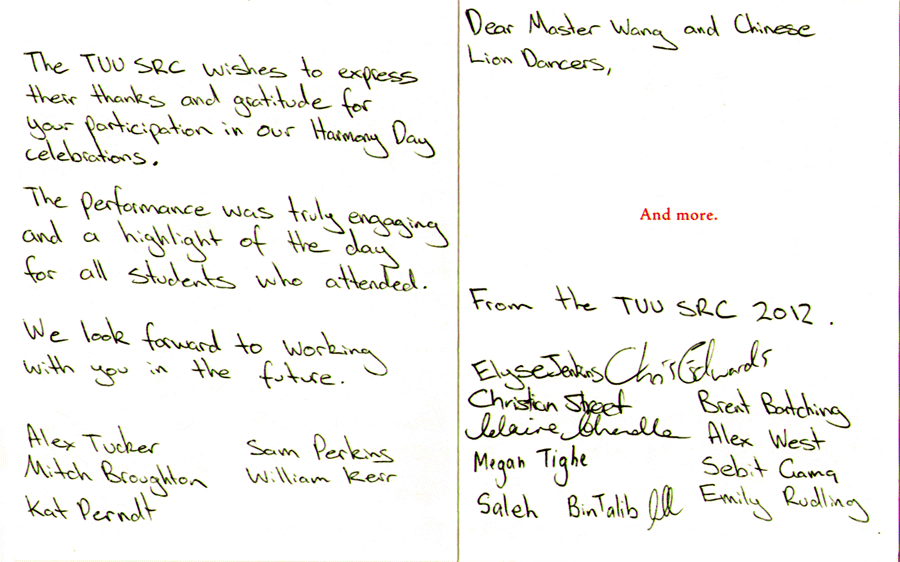 The TUU SRC wishes to express
their thanks and gratitude for
your participation in our Harmony Day
celebrations.
The performance was truly engaging
and a highlight of the day
for all students who attended.
We look forward to working
with you in the future.
Alex Tucker
Sam Perkins
Mitch Broughton
William Kerr
Kat Perndt
Dear Master Wang and Chinese
Lion Dancers,
And more.
From the TUU SRC 2012.
Elyse Jenkins
Chris Edwards
Christian Street
Brent Batching
Claire Chandler
Alex West
Megan Tighe
Sebit Gama
Saleh BinTalib
Emily Rudling